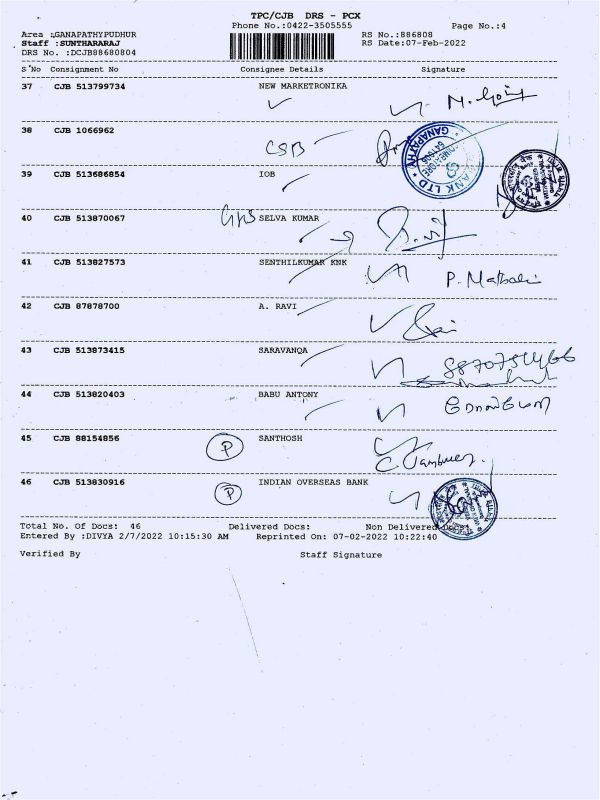 TPC/CJB DRS - PCX
Phone No.:0422-3505555 Page No.:4
Area :GANAPATHYPUDHUR RS No.:886808
Staff :SUNTHARARAJ RS Date:07-Feb-2022
DRS No. :DCJB88680804
S'No Consignment No Consignee Details Signature
37 CJB 513799734 NEW MARKETRONIKA
38 CJB 1066962
CSB
GANAPATHY
COIMBATORE
BANK LTD
39 CJB 513686854 IOB
40 CJB 513870067 SELVA KUMAR
41 CJB 513827573 SENTHILKUMAR KNK
42 CJB 87878700 A. RAVI
43 CJB 513873415 SARAVANQA
44 CJB 513820403 BABU ANTONY
45 CJB 88154856 P SANTHOSH
46 CJB 513830916 P INDIAN OVERSEAS BANK
Total No. Of Docs: 46 Delivered Docs: Non Delivered Docs:
Entered By :DIVYA 2/7/2022 10:15:30 AM Reprinted On: 07-02-2022 10:22:40
Verified By Staff Signature